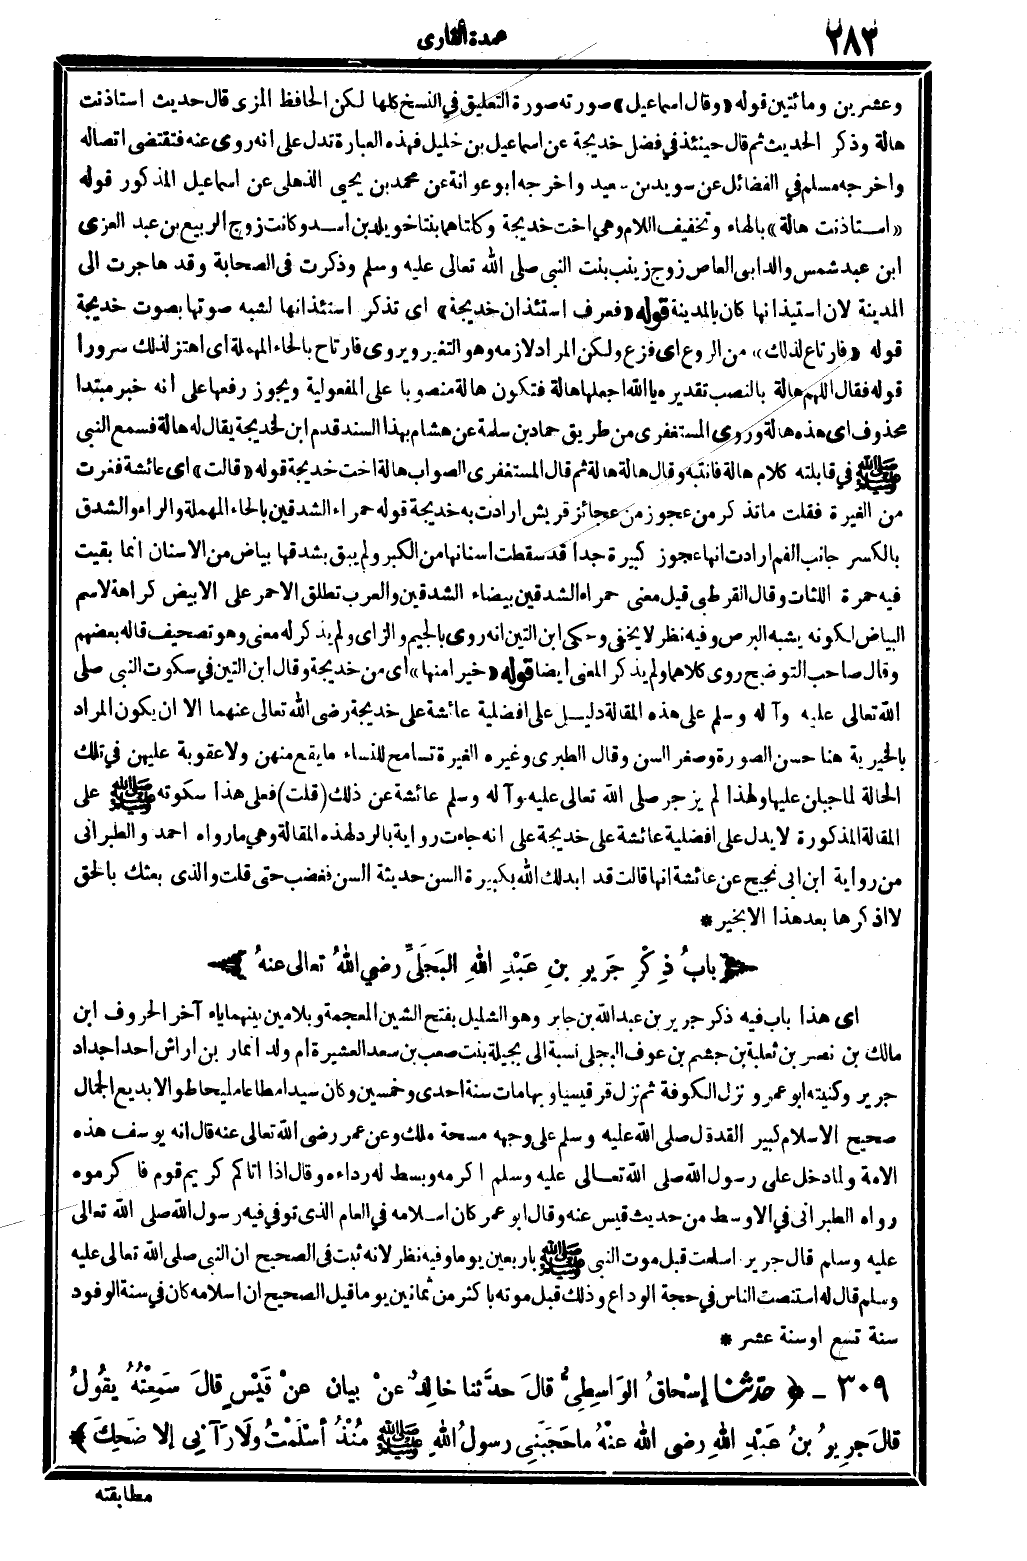 ٢٨٣
عمدة القارى
وعشرين ومائتين قوله «وقال اسماعيل» صورته صورة التعليق في النسخ كلها لكن الحافظ المزى قال حديث استاذنت
هالة وذكر الحديث ثم قال حينئذ في فضل خديجة عن اسماعيل بن خليل فهذه العبارة تدل على انه روى عنه فتقتضى اتصاله
واخرجه مسلم في الفضائل عن سويد بن سعيد واخرجه ابو عوانة عن محمد بن يحيى الذهلى عن اسماعيل المذكور قوله
«استاذنت هالة» بالهاء وتخفيف اللام وهي اخت خديجة وكلتاهما بنتا خويلد بن اسد وكانت زوج الربيع بن عبد العزى
ابن عبد شمس والد ابى العاص زوج زينب بنت النبي صلى الله تعالى عليه وسلم وذكرت في الصحابة وقد هاجرت الى
المدينة لان استيذانها كان بالمدينة قوله «فعرف استئذان خديجة» اى تذكر استئذانها لشبه صوتها بصوت خديجة
قوله «فارتاع لذلك» من الروع اى فزع ولكن المراد لازمه وهو التغير ويروى فارتاح بالحاء المهملة اى اهتز لذلك سرورا
قوله فقال اللهم هالة بالنصب تقديره يا الله اجعلها هالة فتكون هالة منصوبا على المفعولية ويجوز رفعها على انه خبر مبتدا
محذوف اى هذه هالة وروى المستغفرى من طريق حماد بن سلمة عن هشام بهذا السند قدم ابن لخديجة يقال له هالة فسمع النبي
ﷺ في قابلته كلام هالة فانتبه وقال هالة هالة ثم قال المستغفرى الصواب هالة اخت خديجة قوله «قالت» اى عائشة فغرت
من الغيرة فقلت ما تذكر من عجوز من عجائز قريش ارادت به خديجة قوله حمراء الشدقين بالحاء المهملة والراء والشدق
بالكسر جانب الفم ارادت انها عجوز كبيرة جدا قد سقطت اسنانها من الكبر ولم يبق بشدقها بياض من الاسنان انما بقيت
فيه حمرة اللثات وقال القرطبى قيل معنى حمراء الشدقين بيضاء الشدقين والعرب تطلق الاحمر على الابيض كراهة لاسم
البياض لكونه يشبه البرص وفيه نظر لا يخفى وحكى ابن التين انه روى بالجيم والزاى ولم يذكر له معنى وهو تصحيف قاله بعضهم
وقال صاحب التوضيح روى كلاهما ولم يذكر المعنى ايضا قوله «خيرا منها» اى من خديجة وقال ابن التين في سكوت النبي صلى
الله تعالى عليه وآله وسلم على هذه المقالة دليل على افضلية عائشة على خديجة رضى الله تعالى عنهما الا ان يكون المراد
بالخيرية هنا حسن الصورة وصغر السن وقال الطبرى وغيره الغيرة تسامح للنساء ما يقع منهن ولا عقوبة عليهن في تلك
الحالة لما جبلن عليها ولهذا لم يزجر صلى الله تعالى عليه وآله وسلم عائشة عن ذلك (قلت) فعلى هذا سكوته ﷺ على
المقالة المذكورة لا يدل على افضلية عائشة على خديجة على انه جاءت رواية بالرد لهذه المقالة وهي ما رواه احمد والطبرانى
من رواية ابن ابى نجيح عن عائشة انها قالت قد ابدلك الله بكبيرة السن حديثة السن فغضب حتى قلت والذى بعثك بالحق
لا اذكرها بعد هذا الا بخير *
﴿بابُ ذِكْرِ جَرِيرِ بنِ عَبْدِ اللهِ البَجَلِيِّ رضي اللهُ تعالى عنهُ﴾
اى هذا باب فيه ذكر جرير بن عبد الله بن جابر وهو الشليل بفتح الشين المعجمة وبلامين بينهما ياء آخر الحروف ابن
مالك بن نصر بن ثعلبة بن جشم بن عوف البجلى نسبة الى بجيلة بنت صعب بن سعد العشيرة ام ولد انمار بن اراش احد اجداد
جرير وكنيته ابو عمرو نزل الكوفة ثم نزل قرقيسيا وبها مات سنة احدى وخمسين وكان سيدا مطاعا مليحا طوالا بديع الجمال
صحيح الاسلام كبير القدر قال صلى الله عليه وسلم على وجهه مسحة ملك وعن عمر رضى الله تعالى عنه قال انه يوسف هذه
الامة ولما دخل على رسول الله صلى الله تعالى عليه وسلم اكرمه وبسط له رداءه وقال اذا اتاكم كريم قوم فاكرموه
رواه الطبرانى في الاوسط من حديث قيس عنه وقال ابو عمر كان اسلامه في العام الذى توفي فيه رسول الله صلى الله تعالى
عليه وسلم قال جرير اسلمت قبل موت النبي ﷺ باربعين يوما وفيه نظر لانه ثبت فى الصحيح ان النبي صلى الله تعالى عليه
وسلم قال له استنصت الناس في حجة الوداع وذلك قبل موته باكثر من ثمانين يوما قيل الصحيح ان اسلامه كان في سنة الوفود
سنة تسع او سنة عشر *
٣٠٩ - ﴿حَدَّثَنا إسْحاقُ الوَاسِطِيُّ قالَ حدَّثنا خالِدٌ عنْ بيانٍ عنْ قَيْسٍ قالَ سَمِعْتُهُ يقُولُ
قالَ جرِيرُ بنُ عَبْدِ اللهِ رضى الله عنهُ ما حجَبَنِي رسولُ اللهِ ﷺ مُنْذُ أسْلَمْتُ ولا رَآنِي إلا ضَحِكَ﴾
مطابقته